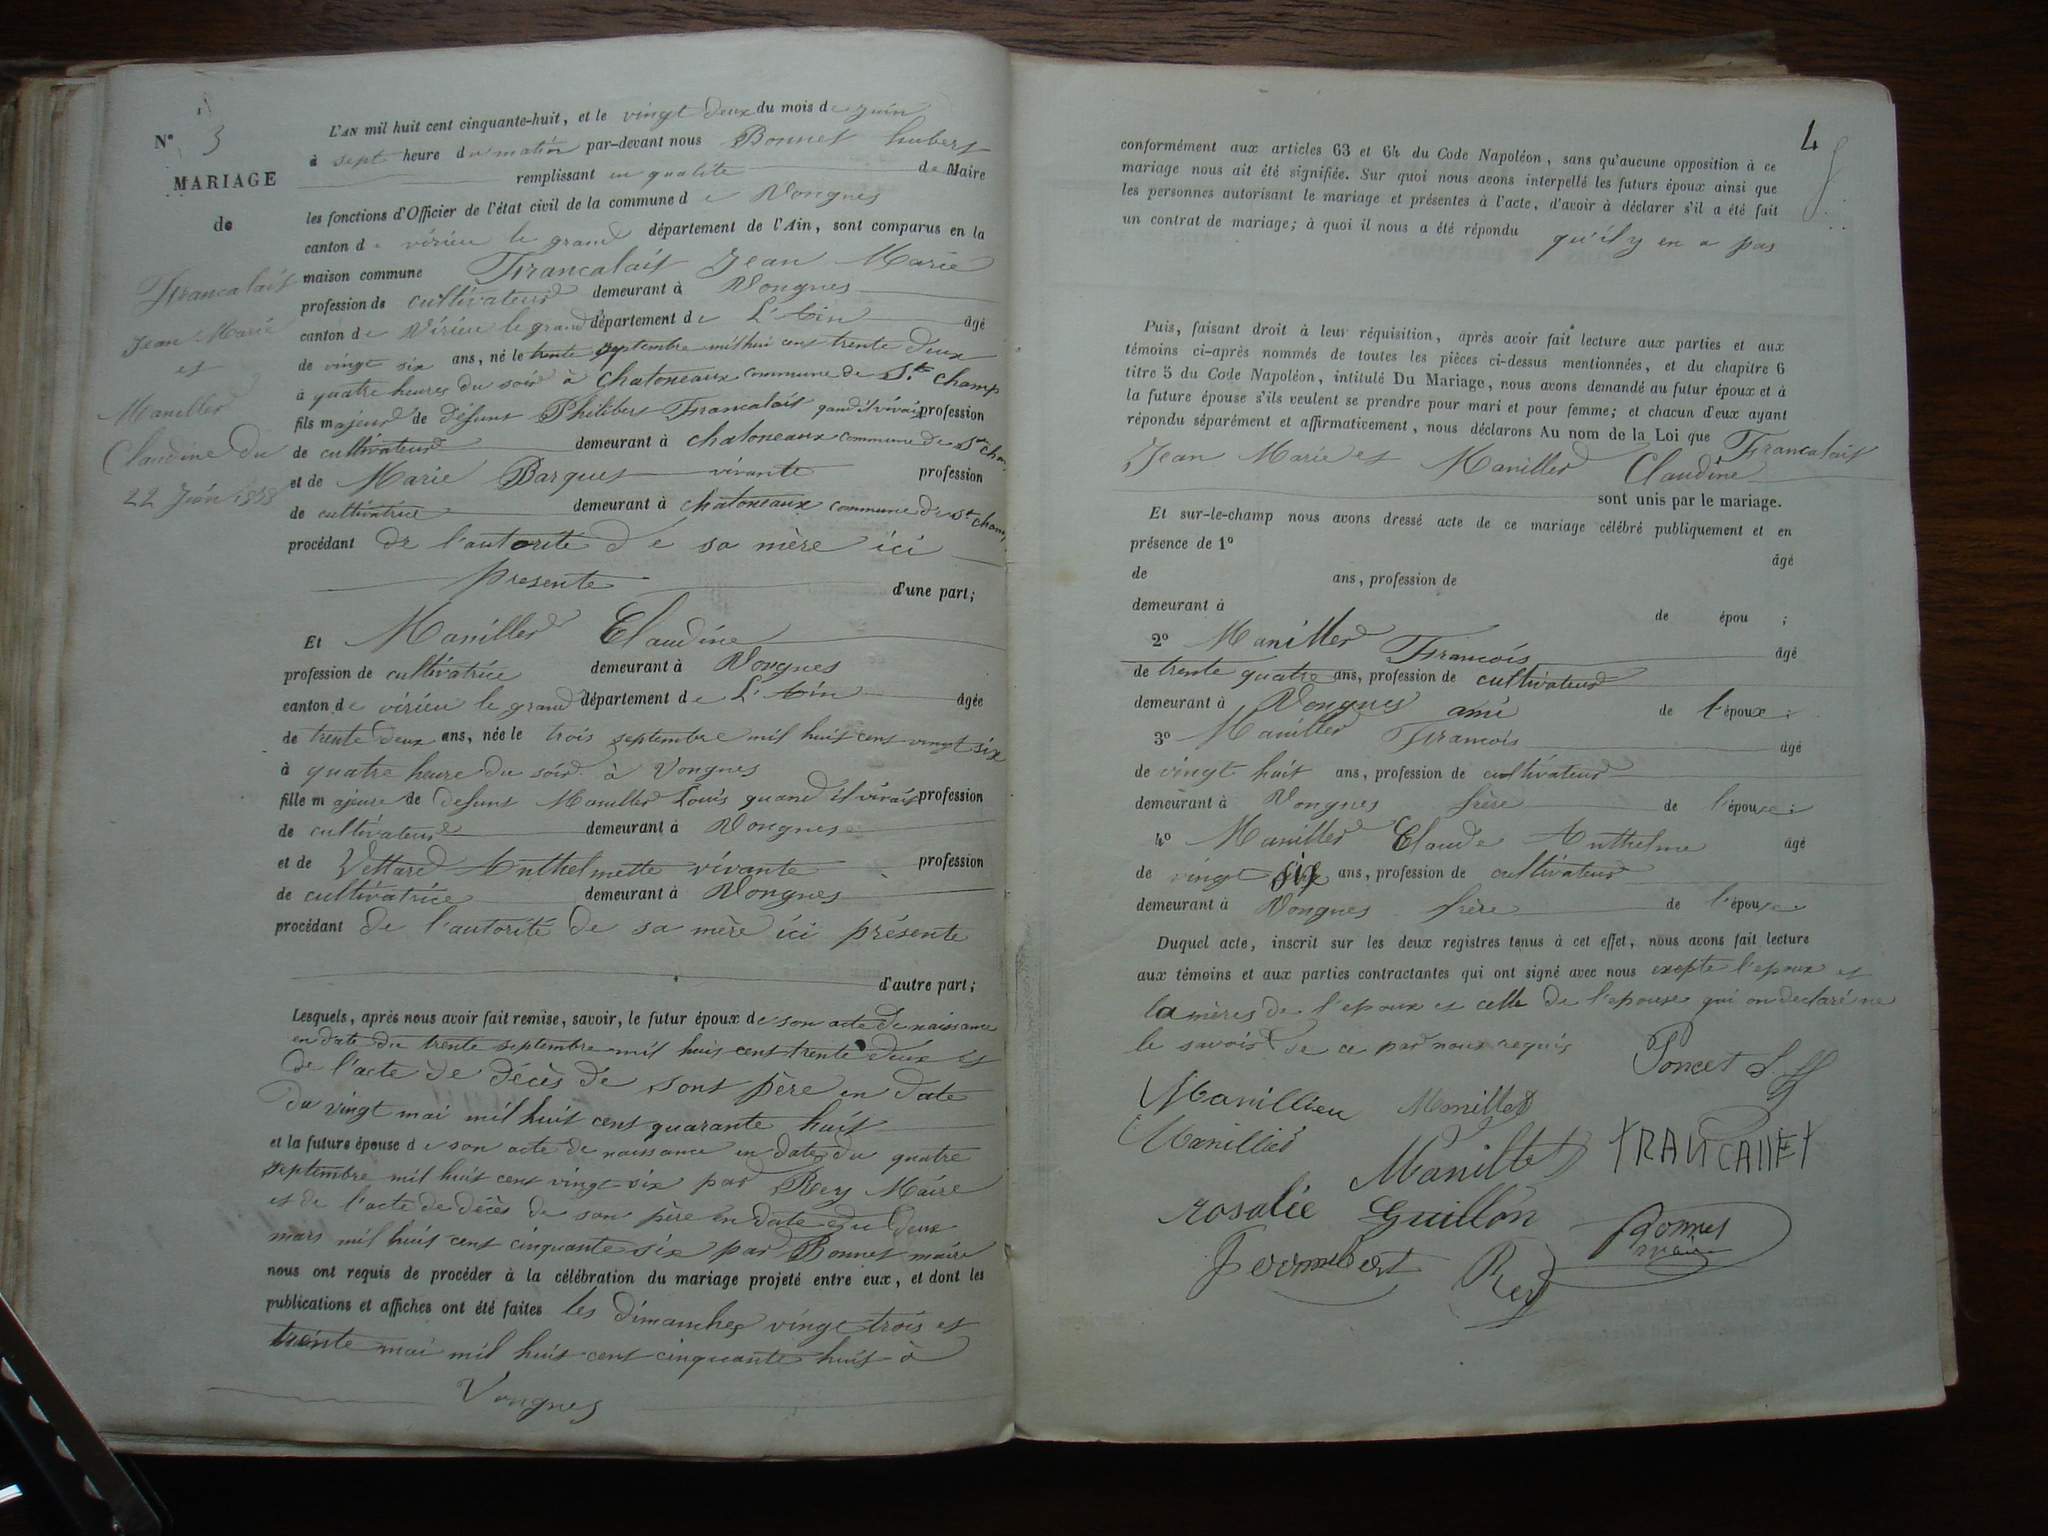 N° 3
MARIAGE
de
Francalait
Jean Marie
et
Maniller
Claudine du
22 Juin 1858
L'AN mil huit cent cinquante-huit, et le vingt deux du mois de Juin
à sept heure du matin par-devant nous Bonnet hubert
remplissant en qualité de Maire
les fonctions d'Officier de l'état civil de la commune de Vongnes
canton de virieu le grand département de l'Ain, sont comparus en la
maison commune Francalait Jean Marie
profession de cultivateur demeurant à Vongnes
canton de Virieu le grand département de L'Ain âgé
de vingt six ans, né le trente septembre mil hui cent trente deux
à quatre heures du soir à chatoneaux commune de St champ
fils majeur de défunt Philibert Francalait quand il vivait profession
de cultivateur demeurant à chatoneaux commune de St cham
et de Marie Barquet vivante profession
de cultivatrice demeurant à chatoneaux commune de St cham
procédant de l'autorité de sa mère ici
presente d'une part;
Et Maniller Claudine
profession de cultivatrice demeurant à Vongnes
canton de virieu le grand département de L'Ain âgée
de trente deux ans, née le trois septembre mil huit cent vingt six
à quatre heure du soir à Vongnes
fille majeure de defunt Maniller Louis quand il vivait profession
de cultivateur demeurant à Vongnes
et de Vettard Anthelmette vivante profession
de cultivatrice demeurant à Vongnes
procédant de l'autorité de sa mère ici présente
d'autre part;
Lesquels, après nous avoir fait remise, savoir, le futur époux de son acte de naissance
en date du trente septembre mil huit cent trente deux et
de l'acte de décès de sont père en date
du vingt mai mil huit cent quarante huit
et la future épouse de son acte de naissance en date du quatre
septembre mil huit cent vingt six par Rey Maire
et de l'acte de décès de son père en date du deux
mars mil huit cent cinquante six par Bonnet maire
nous ont requis de procéder à la célébration du mariage projeté entre eux, et dont les
publications et affiches ont été faites les dimanches vingt trois et
trente mai mil huit cent cinquante huit à
Vongnes
4
conformément aux articles 63 et 64 du Code Napoléon, sans qu'aucune opposition à ce
mariage nous ait été signifiée. Sur quoi nous avons interpellé les futurs époux ainsi que
les personnes autorisant le mariage et présentes à l'acte, d'avoir à déclarer s'il a été fait
un contrat de mariage; à quoi il nous a été répondu qu'il y en a pas
Puis, faisant droit à leur réquisition, après avoir fait lecture aux parties et aux
témoins ci-après nommés de toutes les pièces ci-dessus mentionnées, et du chapitre 6
titre 5 du Code Napoléon, intitulé Du Mariage, nous avons demandé au futur époux et à
la future épouse s'ils veulent se prendre pour mari et pour femme; et chacun d'eux ayant
répondu séparément et affirmativement, nous déclarons Au nom de la Loi que Francalait
Jean Marie et Maniller Claudine
sont unis par le mariage.
Et sur-le-champ nous avons dressé acte de ce mariage célébré publiquement et en
présence de 1° âgé
de ans, profession de
demeurant à de épou ;
2° Maniller Francois âgé
de trente quatre ans, profession de cultivateur
demeurant à Vongnes ami de l'époux;
3° Maniller Francois âgé
de vingt huit ans, profession de cultivateur
demeurant à Vongnes frère de l'épouse;
4° Maniller Claude Anthelme âgé
de vingt six ans, profession de cultivateur
demeurant à Vongnes frère de l'épouse
Duquel acte, inscrit sur les deux registres tenus à cet effet, nous avons fait lecture
aux témoins et aux parties contractantes qui ont signé avec nous exepte l'epoux et
la mères de l'epoux et celle de l'epouse qui on declaré ne
le savoir de ce par nous requis
Poncet
Manillieu Maniller
Manillier
Maniller FRANCALLET
rosalie Guillon
Bonnet
maire
Rey